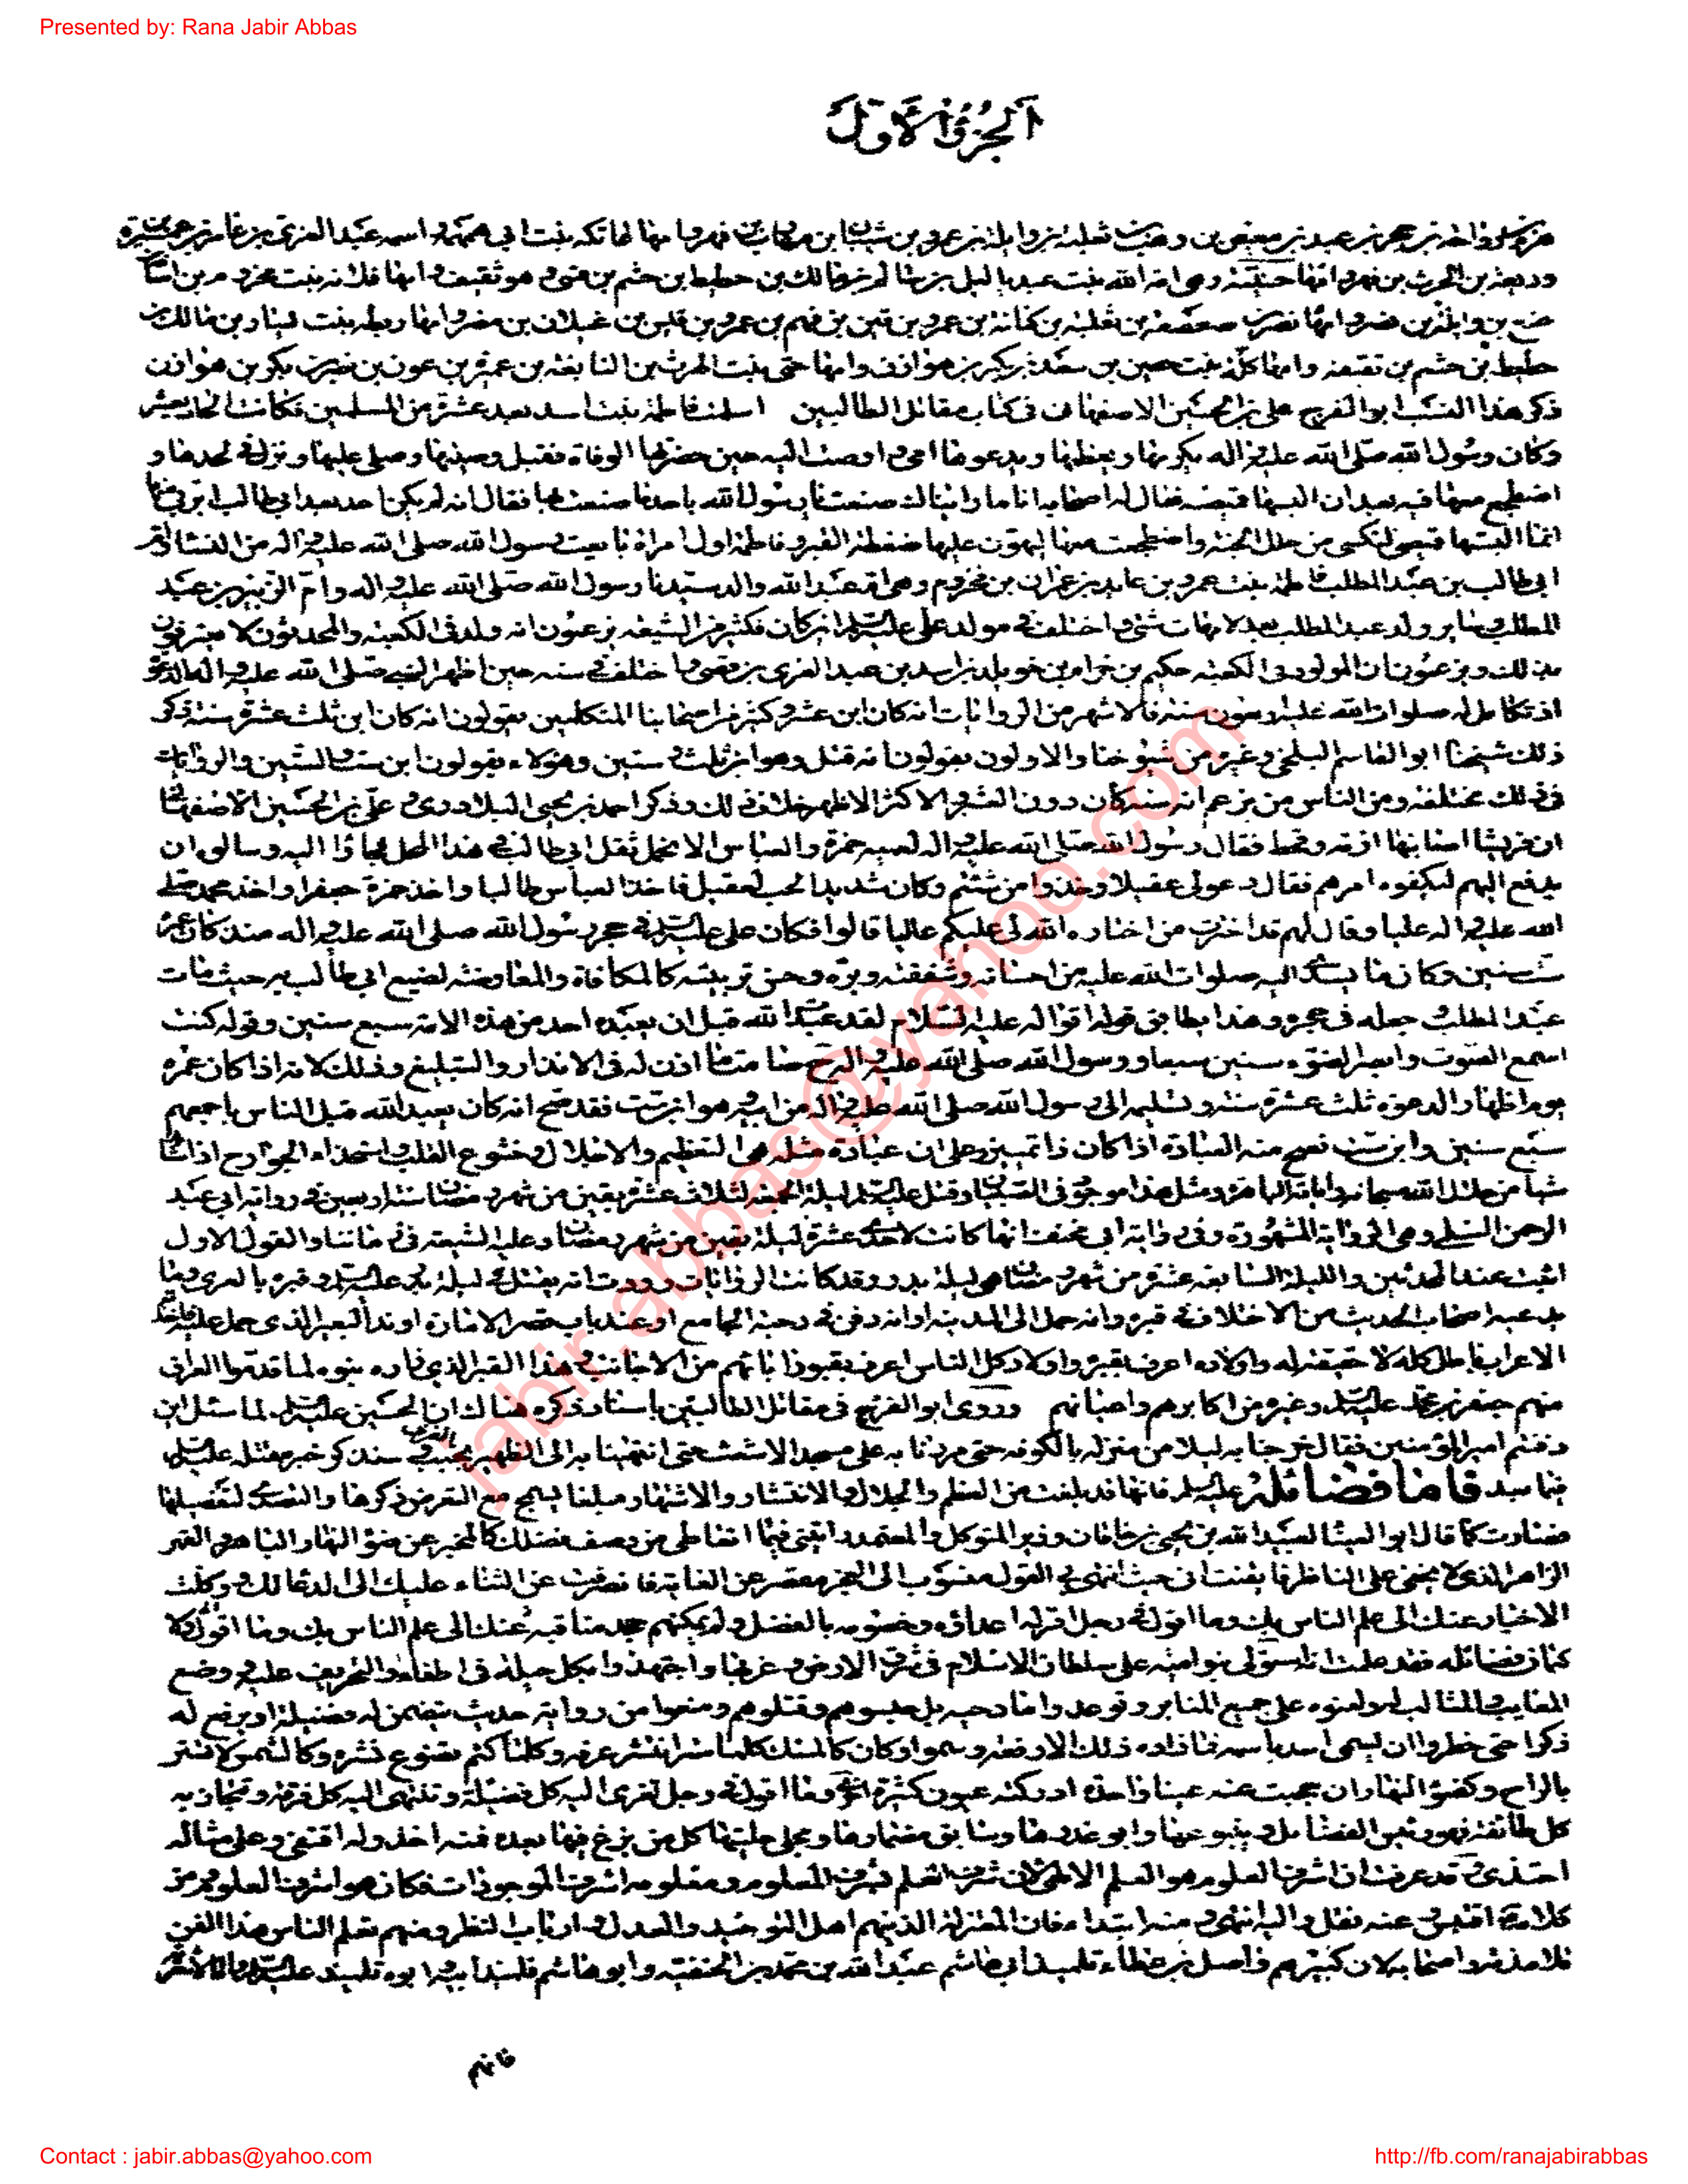 Presented by: Rana Jabir Abbas
الجزؤ الاول
وربيعة بن الحرث بن فهر وامها
حطيط بن حشم بن ثقيف وامها كلة بنت حصين بن سعد بن بكر بن هوازن وامها حتى بنت الحرث بن النابغة بن عميرة بن عون بن نضر بن بكر بن هوازن
ذكر هذا النسب ابو الفرج على بن الحسين الاصفهانى فى كتاب مقاتل الطالبيين اسلمت فاطمة بنت اسد بعد عشرة من المسلمين فكانت الحادية عشر
وكان رسول الله صلى الله عليه واله يكرمها ويعظمها ويدعوها امى واوصت اليه حين حضرتها الوفاة فقبل وصيتها وصلى عليها ونزل فى لحدها و
اضطجع معها فيه بعد ان البسها قميصه فقال له اصحابه انا ما رايناك صنعت يا رسول الله باحد ما صنعت بها فقال انه لم يكن احد بعد ابى طالب ابر بى منها
انما البستها قميصى لتكسى من حلل الجنة واضطجعت معها ليهون عليها ضغطة القبر وفاطمة اول امراة بايعت رسول الله صلى الله عليه واله من النساء وام
ابى طالب بن عبد المطلب فاطمة بنت عمرو بن عايد بن عمران بن مخزوم وهى ام عبد الله والد سيدنا رسول الله صلى الله عليه واله وام الزبير بن عبد
المطلب وساير ولد عبد المطلب بعد لامهات شتى واختلف فى مولد على عليه السلم اين كان فكثير من الشيعه يزعمون انه ولد فى الكعبة والمحدثون لا يعترفون
بذلك ويزعمون ان المولود فى الكعبه حكيم بن حزام بن خويلد بن اسد بن عبد العزى بن قصى واختلف فى سنه حين اظهر النبى صلى الله عليه واله الدعوة
اذ تكامل له صلوات الله عليه اربعون سنة فالاشهر من الروايات انه كان ابن عشر وكثير من اصحابنا المتكلمين يقولون انه كان ابن ثلث عشرة سنة ذكر
ذلك شيخنا ابو القاسم البلخى وغيره من شيوخنا والاولون يقولون انه قتل وهو ابن ثلث وستين وهؤلاء يقولون ابن ست وستين والروايات
فى ذلك مختلفة ومن الناس من يزعم ان سنه كان دون العشر والاكثر الاظهر خلاف ذلك وذكر احمد بن يحيى البلادورى وعلى بن الحسين الاصفهانى
ان قريشا اصابتها ازمة وقحط فقال رسول الله صلى الله عليه واله لعميه حمزة والعباس الا نحمل ثقل ابى طالب فى هذا المحل فجاؤا اليه وسالوه ان
يدفع اليهم ليكفوه امرهم فقال دعوا لى عقيلا وخذوا من شئتم وكان شديد الحب لعقيل فاخذ العباس طالبا واخذ حمزة جعفرا واخذ محمد صلى
الله عليه واله عليا وقال لهم قد اخترت من اختاره الله لى عليكم عاليا قالوا فكان على عليه السلم فى حجر رسول الله صلى الله عليه واله منذ كان عمره
ست سنين وكان ما يسدى اليه صلوات الله عليه من احسانه وشفقته وبره وحسن تربيته كالمكافاة والمعاوضة لصنيع ابى طالب به حيث مات
عبد المطلب وجعله فى حجره وهذا يطابق قوله عليه السلام لقد عبدت الله قبل ان يعبده احد من هذه الامة سبع سنين وقوله كنت
اسمع الصوت وابصر الضوء سنين سبعا ورسول الله صلى الله عليه واله ح صامت ما اذن له فى الانذار والتبليغ وذلك لانه اذا كان عمره
يوم اظهار الدعوة ثلث عشرة سنة وتسليمه الى رسول الله صلى الله عليه واله من ابيه وهو ابن ست فقد صح انه كان يعبد الله قبل الناس باجمعهم
سبع سنين وابن ست تصح منه العبادة اذا كان ذا تميز على ان عبادة مثله هى التعظيم والاجلال وخشوع القلب واستخذاء الجوارح اذا شاهد
شيئا من جلال الله سبحانه واياته الباهرة ومثل هذا موجود فى الصبيان وقتل عليه السلم ليلة الجمعة لثلاث عشرة بقين من شهر رمضان سنة اربعين فى رواية ابى عبد
الرحمن السلمى وهى الرواية المشهورة وفى رواية ابى مخنف انها كانت لاحدى عشرة ليلة بقين من شهر رمضان وعليه الشيعة فى زماننا والقول الاول
اثبت عند المحدثين والليلة السابعة عشرة من شهر رمضان هى ليلة بدر وقد كانت الروايات وردت انه يقتل فى ليلة بدر عليه السلم وقبره بالغرى وما
يدعيه اصحاب الحديث من الاختلاف فى قبره وانه حمل الى المدينة او انه دفن فى رحبة الجامع او عند باب قصر الامارة او ند البعير الذى حمل عليه فاخذته
الاعراب باطل كله لا حقيقة له واولاده اعرف بقبره واولاد كل الناس اعرف بقبور ابائهم من الاجانب وهذا القبر الذى زاره بنوه لما قدموا العراق
منهم جعفر بن محمد عليه السلم وغيره من اكابرهم واعيانهم وروى ابو الفرج فى مقاتل الطالبيين باسناد ذكره هناك ان الحسين عليه السلم لما سئل اين
دفنتم امير المؤمنين فقال خرجنا به ليلا من منزله بالكوفه حتى مررنا به على مسجد الاشعث حتى انتهينا به الى الظهر بجنب الغرى وسنذكر خبر مقتله عليه السلم
فيما بعد فاما فضائله عليه السلم فانها قد بلغت من العظم والجلال والانتشار والاشتهار مبلغا يسمج معه التعرض لذكرها والتصدى لتفصيلها
فصارت كما قال ابو العيناء لعبيد الله بن يحيى بن خاقان وزير المتوكل والمعتمد رايتنى فيما اتعاطى من وصف فضلك كالمخبر عن ضوء النهار الباهر والقمر
الزاهر الذى لا يخفى على الناظر فايقنت انى حيث انتهى بى القول منسوب الى العجز مقصر عن الغاية فانصرفت عن الثناء عليك الى الدعا لك ووكلت
الاخبار عنك الى علم الناس بك وما اقول فى رجل اقر له اعداؤه وخصومه بالفضل ولم يمكنهم جحد مناقبه ولا
كتمان فضائله فقد علمت انه استولى بنو امية على سلطان الاسلام فى شرق الارض وغربها واجتهدوا بكل حيلة فى اطفاء نوره والتحريف عليه ووضع
المعايب والمثالب له ولعنوه على جميع المنابر وتوعدوا مادحيه بل حبسوهم وقتلوهم ومنعوا من رواية حديث يتضمن له فضيلة او يرفع له
ذكرا حتى حظروا ان يسمى احد باسمه فما زاده ذلك الا رفعة وسموا وكان كالمسك كلما ستر انتشر عرفه وكلما كتم يتضوع نشره وكالشمس لا تستر
بالراح وكضوء النهار ان حجبت عنه عينا واحدة ادركته عيون كثيرة اخرى وما اقول فى رجل تعزى اليه كل فضيلة وتنتهى اليه كل فرقة وتتجاذبه
كل طائفة فهو رئيس الفضائل وينبوعها وابو عذرها وسابق مضمارها ومجلى حلبتها كل من بزغ فيها بعده فمنه اخذ وله اقتفى وعلى مثاله
احتذى وقد عرفت ان اشرف العلوم هو العلم الالهى لان شرف العلم بشرف المعلوم ومعلومه اشرف الموجودات فكان هو اشرف العلوم ومن
كلامه اقتبس وعنه نقل واليه انتهى ومنه ابتدا فان المعتزلة الذين هم اهل التوحيد والعدل وارباب النظر ومنهم تعلم الناس هذا الفن
تلامذته واصحابه لان كبيرهم واصل بن عطاء تلميذ ابى هاشم عبد الله بن محمد بن الحنفية وابو هاشم تلميذ ابيه وابوه تلميذ عليه السلم واما الاشعرية
فانهم
jabir.abbas@yahoo.com
Contact : jabir.abbas@yahoo.com
http://fb.com/ranajabirabbas